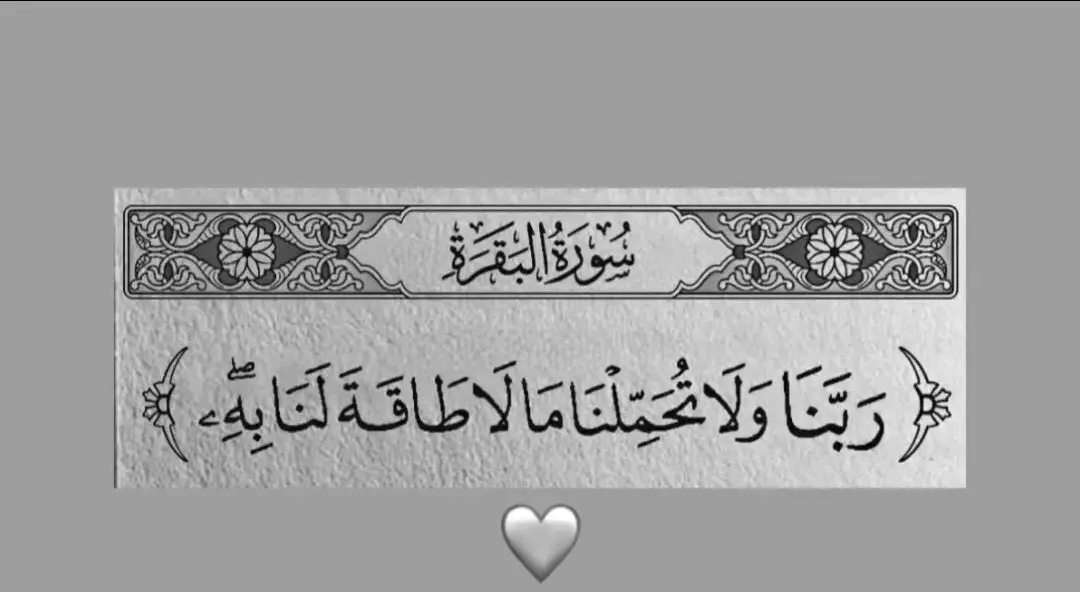 سُورَةُ البَقَرَةِ
﴿رَبَّنَا وَلَا تُحَمِّلْنَا مَا لَا طَاقَةَ لَنَا بِهِۦۖ﴾